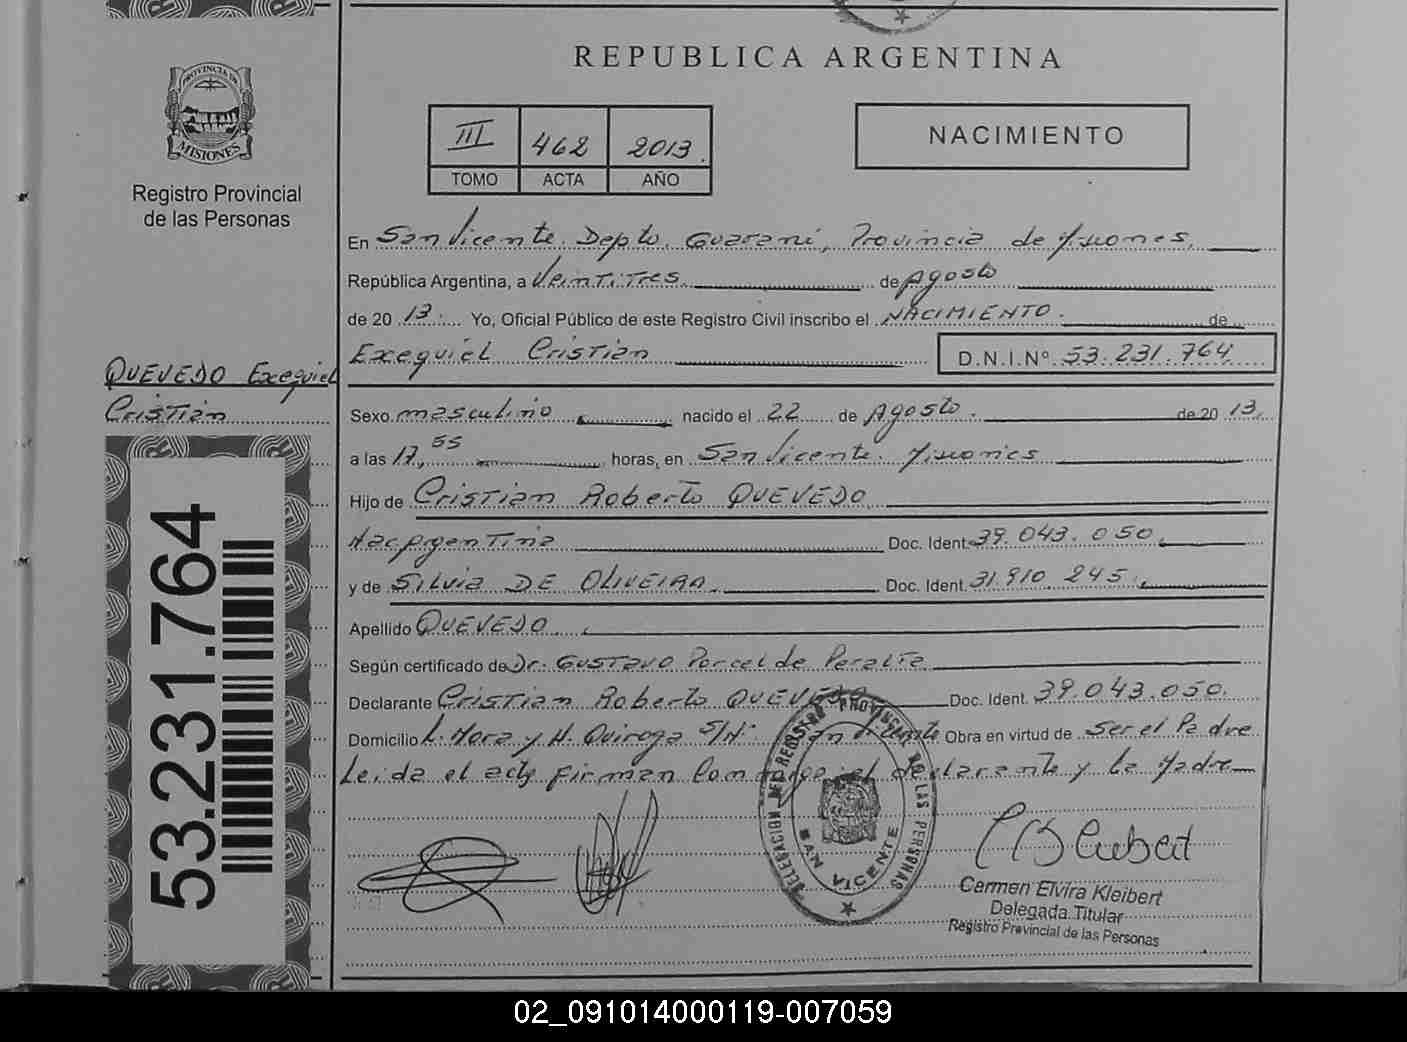 REPUBLICA ARGENTINA
PROVINCIA DE
MISIONES
Registro Provincial
de las Personas
III 462 2013.
TOMO ACTA AÑO
NACIMIENTO
En San Vicente. Depto. Guaraní, Provincia de Misiones,
República Argentina, a Veintitres de Agosto
de 20 13. Yo, Oficial Público de este Registro Civil inscribo el NACIMIENTO. de
Exequiel Cristian D.N.I.Nº 53.231.764
QUEVEDO Exequiel
Cristian
Sexo masculino nacido el 22 de Agosto. de 20 13.
a las 17,55 horas, en San Vicente. Misiones
Hijo de Cristian Roberto QUEVEDO
Nac Argentina Doc. Ident. 39.043.050.
y de Silvia DE OLIVEIRA. Doc. Ident. 31.910.245.
Apellido QUEVEDO.
Según certificado de Dr. Gustavo Porcel de Peralta
Declarante Cristian Roberto QUEVEDO Doc. Ident. 39.043.050.
Domicilio L. Mora y H. Quiroga S/Nº San Vicente Obra en virtud de ser el Padre
Leida el acta firman conmigo el declarante y la Madre
53.231.764
DELEGACION DEL REGISTRO PROVINCIAL DE LAS PERSONAS
SAN VICENTE
Carmen Elvira Kleibert
Delegada Titular
Registro Provincial de las Personas
02_091014000119-007059